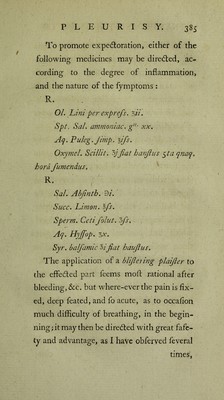 PLEURISY. 385
To promote expectoration, either of the
following medicines may be directed, ac-
cording to the degree of inflammation,
and the nature of the symptoms :
R.
Ol. Lini per express. ʒii.
Spt. Sal. ammoniac. gtt xx.
Aq. Puleg. simp. ʒiſs.
Oxymel. Scillit. ʒj fiat haustus 5ta quaq.
horâ sumendus.
R.
Sal. Absinth. ℈i.
Succ. Limon. ℥ſs.
Sperm. Ceti solut. ℥ſs.
Aq. Hyssop. ʒx.
Syr. balsamic ʒi fiat haustus.
The application of a blistering plaister to
the effected part seems most rational after
bleeding, &c. but where-ever the pain is fix-
ed, deep seated, and so acute, as to occasion
much difficulty of breathing, in the begin-
ning; it may then be directed with great safe-
ty and advantage, as I have observed several
times,